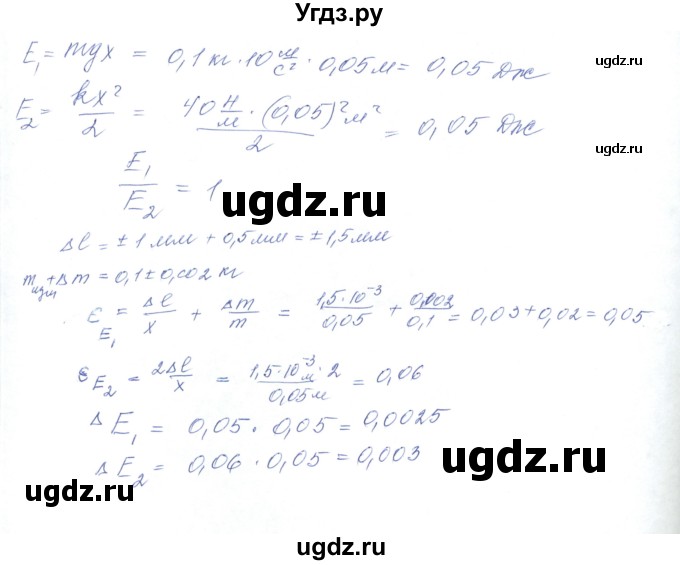 Угдз.ру
E₁ = mgx = 0,1 кг · 10 м/с² · 0,05 м = 0,05 Дж
ugdz.ru
E₂ = kx²/2 = 40 Н/м · (0,05)² м² / 2 = 0,05 Дж
ugdz.ru
E₁/E₂ = 1
ugdz.ru
Δl = ± 1 мм + 0,5 мм = ± 1,5 мм
mизм + Δm = 0,1 ± 0,002 кг
ε E₁ = Δl/x + Δm/m = 1,5·10⁻³/0,05 + 0,002/0,1 = 0,03 + 0,02 = 0,05
ε E₂ = 2Δl/x = 1,5·10⁻³ м · 2 / 0,05 м = 0,06
Δ E₁ = 0,05 · 0,05 = 0,0025
Δ E₂ = 0,06 · 0,05 = 0,003
ugdz.ru
ugdz.ru
ugdz.ru